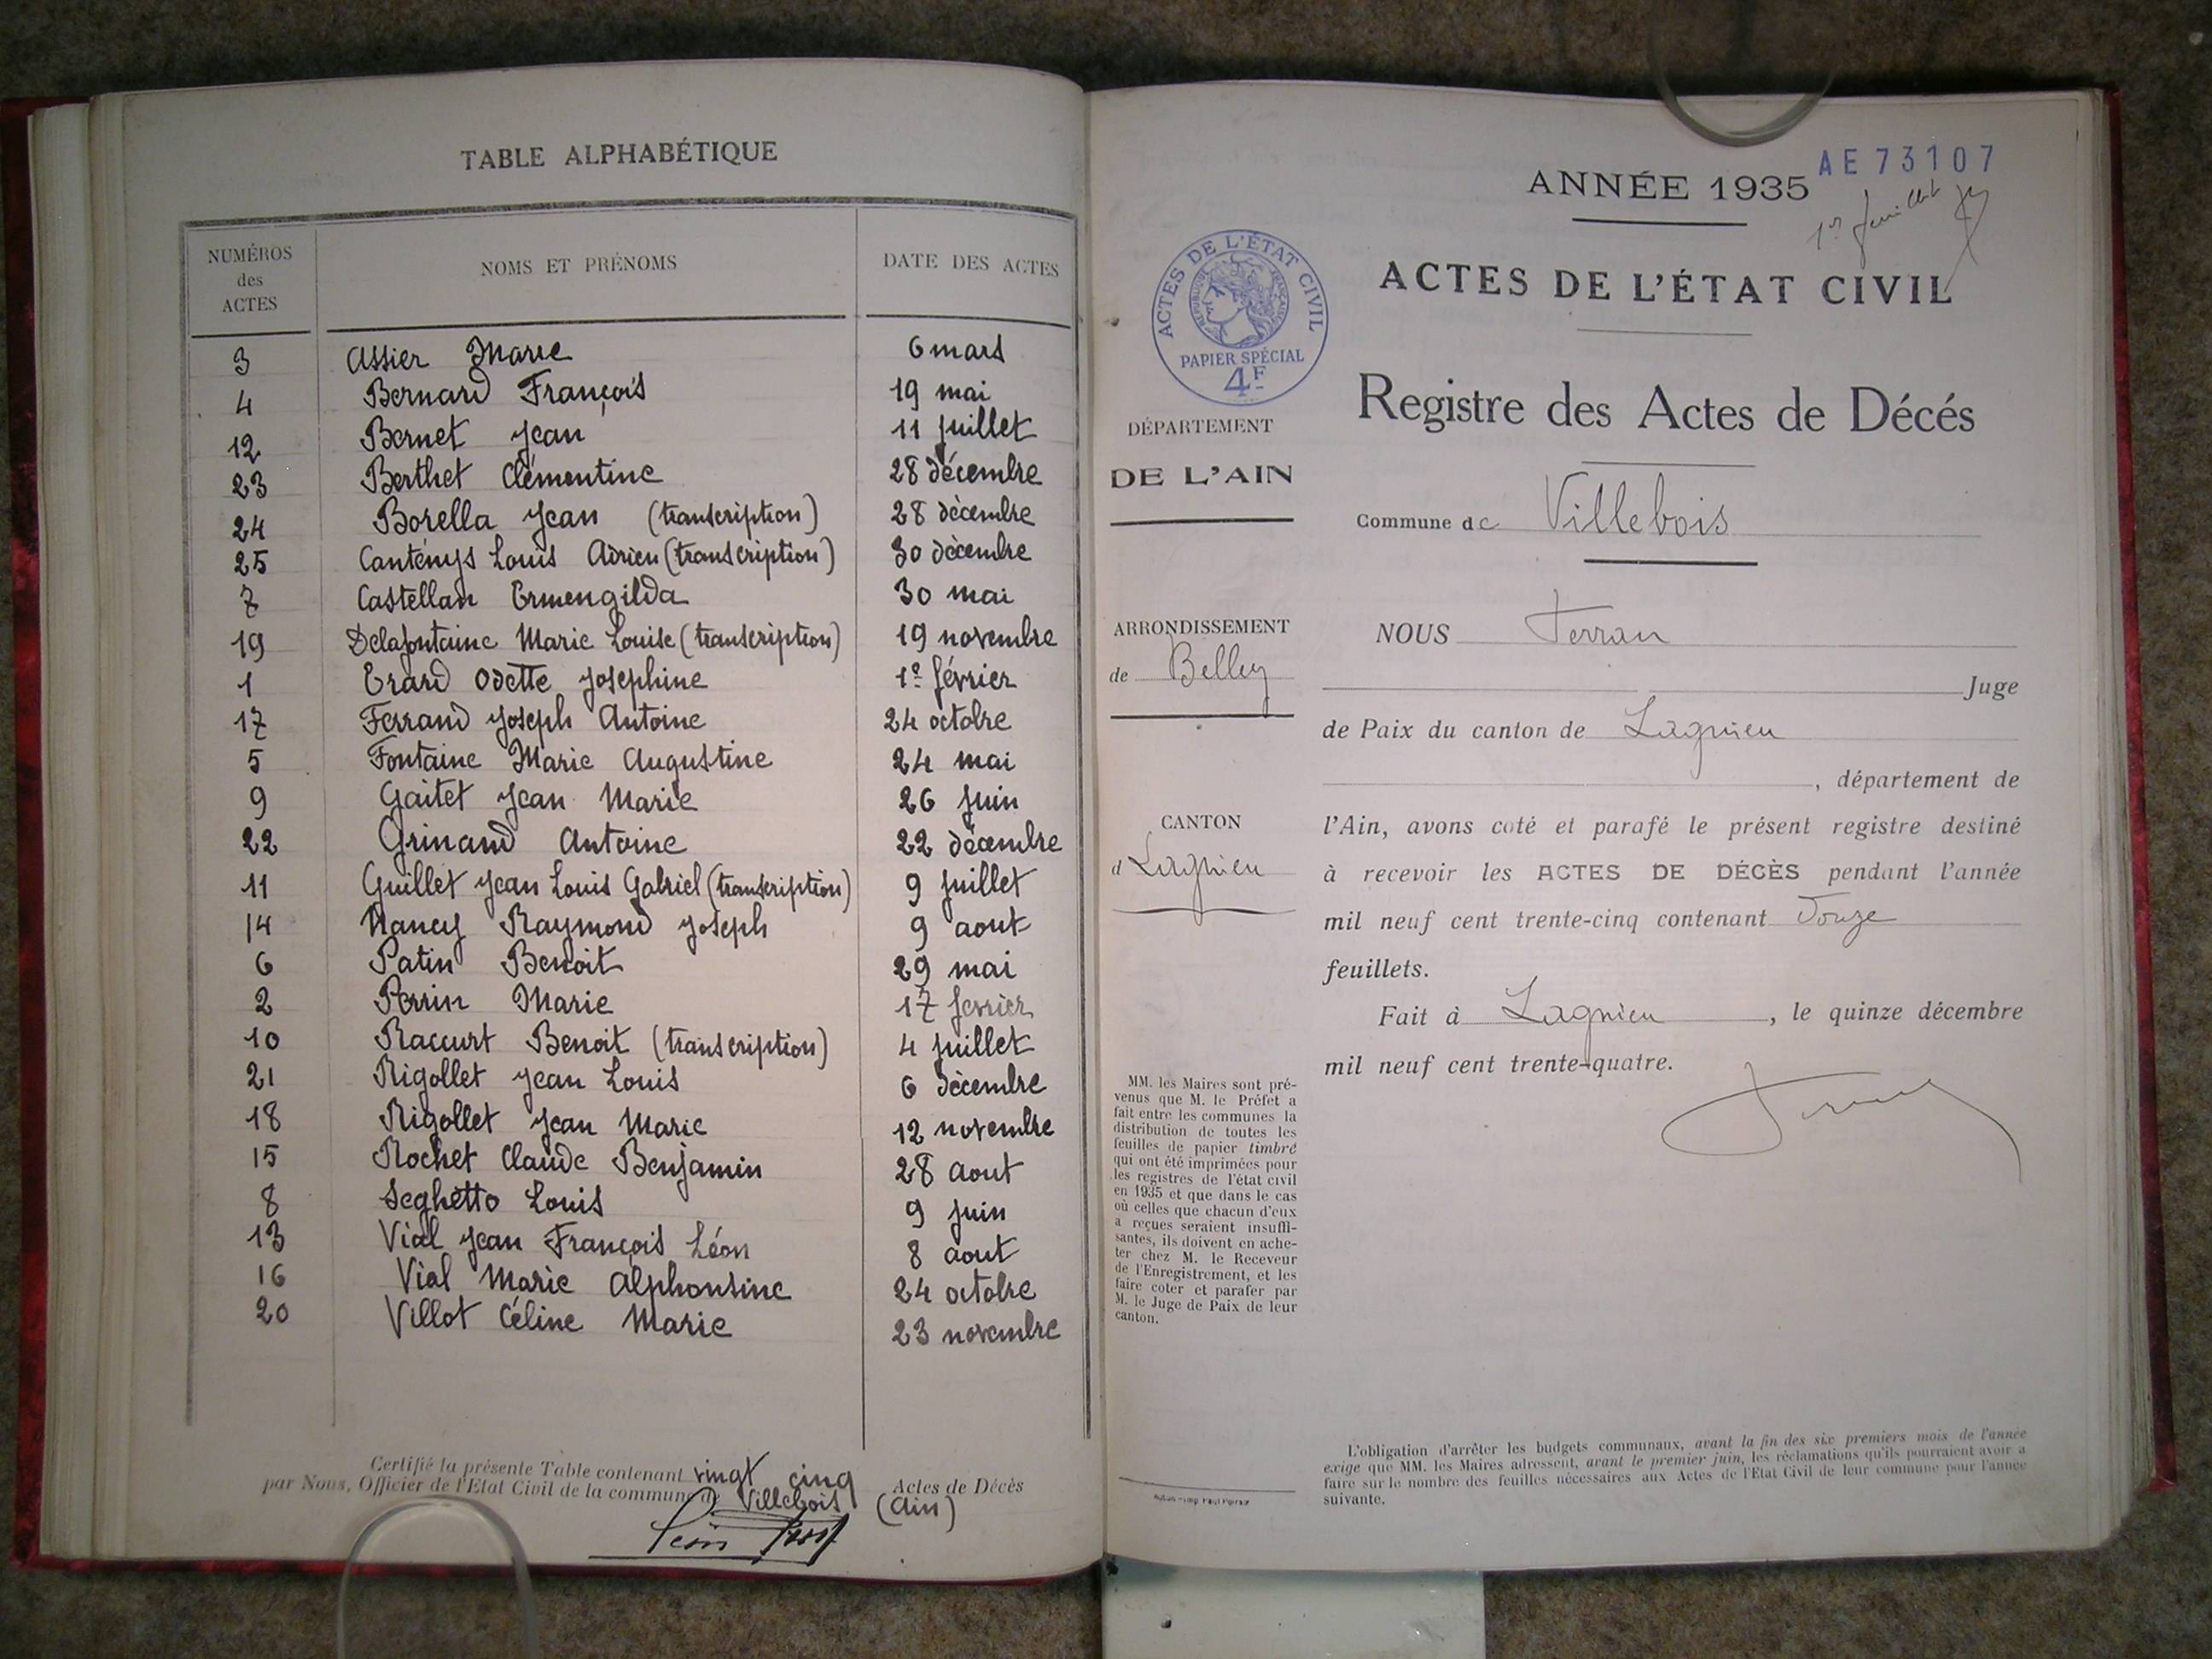 TABLE ALPHABÉTIQUE
NUMÉROS des ACTES NOMS ET PRÉNOMS DATE DES ACTES
3 Assier Marie 6 mars
4 Bernard François 19 mai
12 Bernet Jean 11 juillet
23 Berthet Clémentine 28 décembre
24 Borella Jean (transcription) 28 décembre
25 Canténys Louis Adrien (transcription) 30 décembre
7 Castellan Ermengilda 30 mai
19 Delafontaine Marie Louise (transcription) 19 novembre
1 Erard Odette Josephine 1er février
17 Ferrand Joseph Antoine 24 octobre
5 Fontaine Marie Augustine 24 mai
9 Gaitet Jean Marie 26 juin
22 Grinand Antoine 22 décembre
11 Guillet Jean Louis Gabriel (transcription) 9 juillet
14 Nancy Raymond Joseph 9 aout
6 Patin Benoit 29 mai
2 Perrin Marie 17 fevrier
10 Raccurt Benoit (transcription) 4 juillet
21 Rigollet Jean Louis 6 décembre
18 Rigollet Jean Marie 12 novembre
15 Rochet Claude Benjamin 28 aout
8 Seghetto Louis 9 juin
13 Vial Jean François Léon 8 aout
16 Vial Marie Alphonsine 24 octobre
20 Villot Céline Marie 23 novembre
Certifié la présente Table contenant vingt cinq Actes de Décès
par Nous, Officier de l'Etat Civil de la commune de Villebois (Ain)
AE 73107
ANNÉE 1935
1er feuillet
ACTES DE L'ÉTAT CIVIL
ACTES DE L'ÉTAT CIVIL
RÉPUBLIQUE FRANÇAISE
PAPIER SPÉCIAL
4F
Registre des Actes de Décés
DÉPARTEMENT
DE L'AIN
Commune de Villebois
ARRONDISSEMENT
de Belley
CANTON
d Lagnieu
MM. les Maires sont pré-
venus que M. le Préfet a
fait entre les communes la
distribution de toutes les
feuilles de papier timbré
qui ont été imprimées pour
les registres de l'état civil
en 1935 et que dans le cas
où celles que chacun d'eux
a reçues seraient insuffi-
santes, ils doivent en ache-
ter chez M. le Receveur
de l'Enregistrement, et les
faire coter et parafer par
M. le Juge de Paix de leur
canton.
NOUS Ferran
Juge
de Paix du canton de Lagnieu
, département de
l'Ain, avons coté et parafé le présent registre destiné
à recevoir les ACTES DE DÉCÈS pendant l'année
mil neuf cent trente-cinq contenant Douze
feuillets.
Fait à Lagnieu, le quinze décembre
mil neuf cent trente-quatre.
L'obligation d'arrêter les budgets communaux, avant la fin des six premiers mois de l'année
exige que MM. les Maires adressent, avant le premier juin, les réclamations qu'ils pourraient avoir a
faire sur le nombre des feuilles nécessaires aux Actes de l'Etat Civil de leur commune pour l'année
suivante.